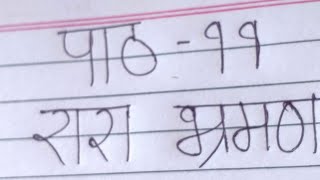 पाठ -११
रारा भ्रमण